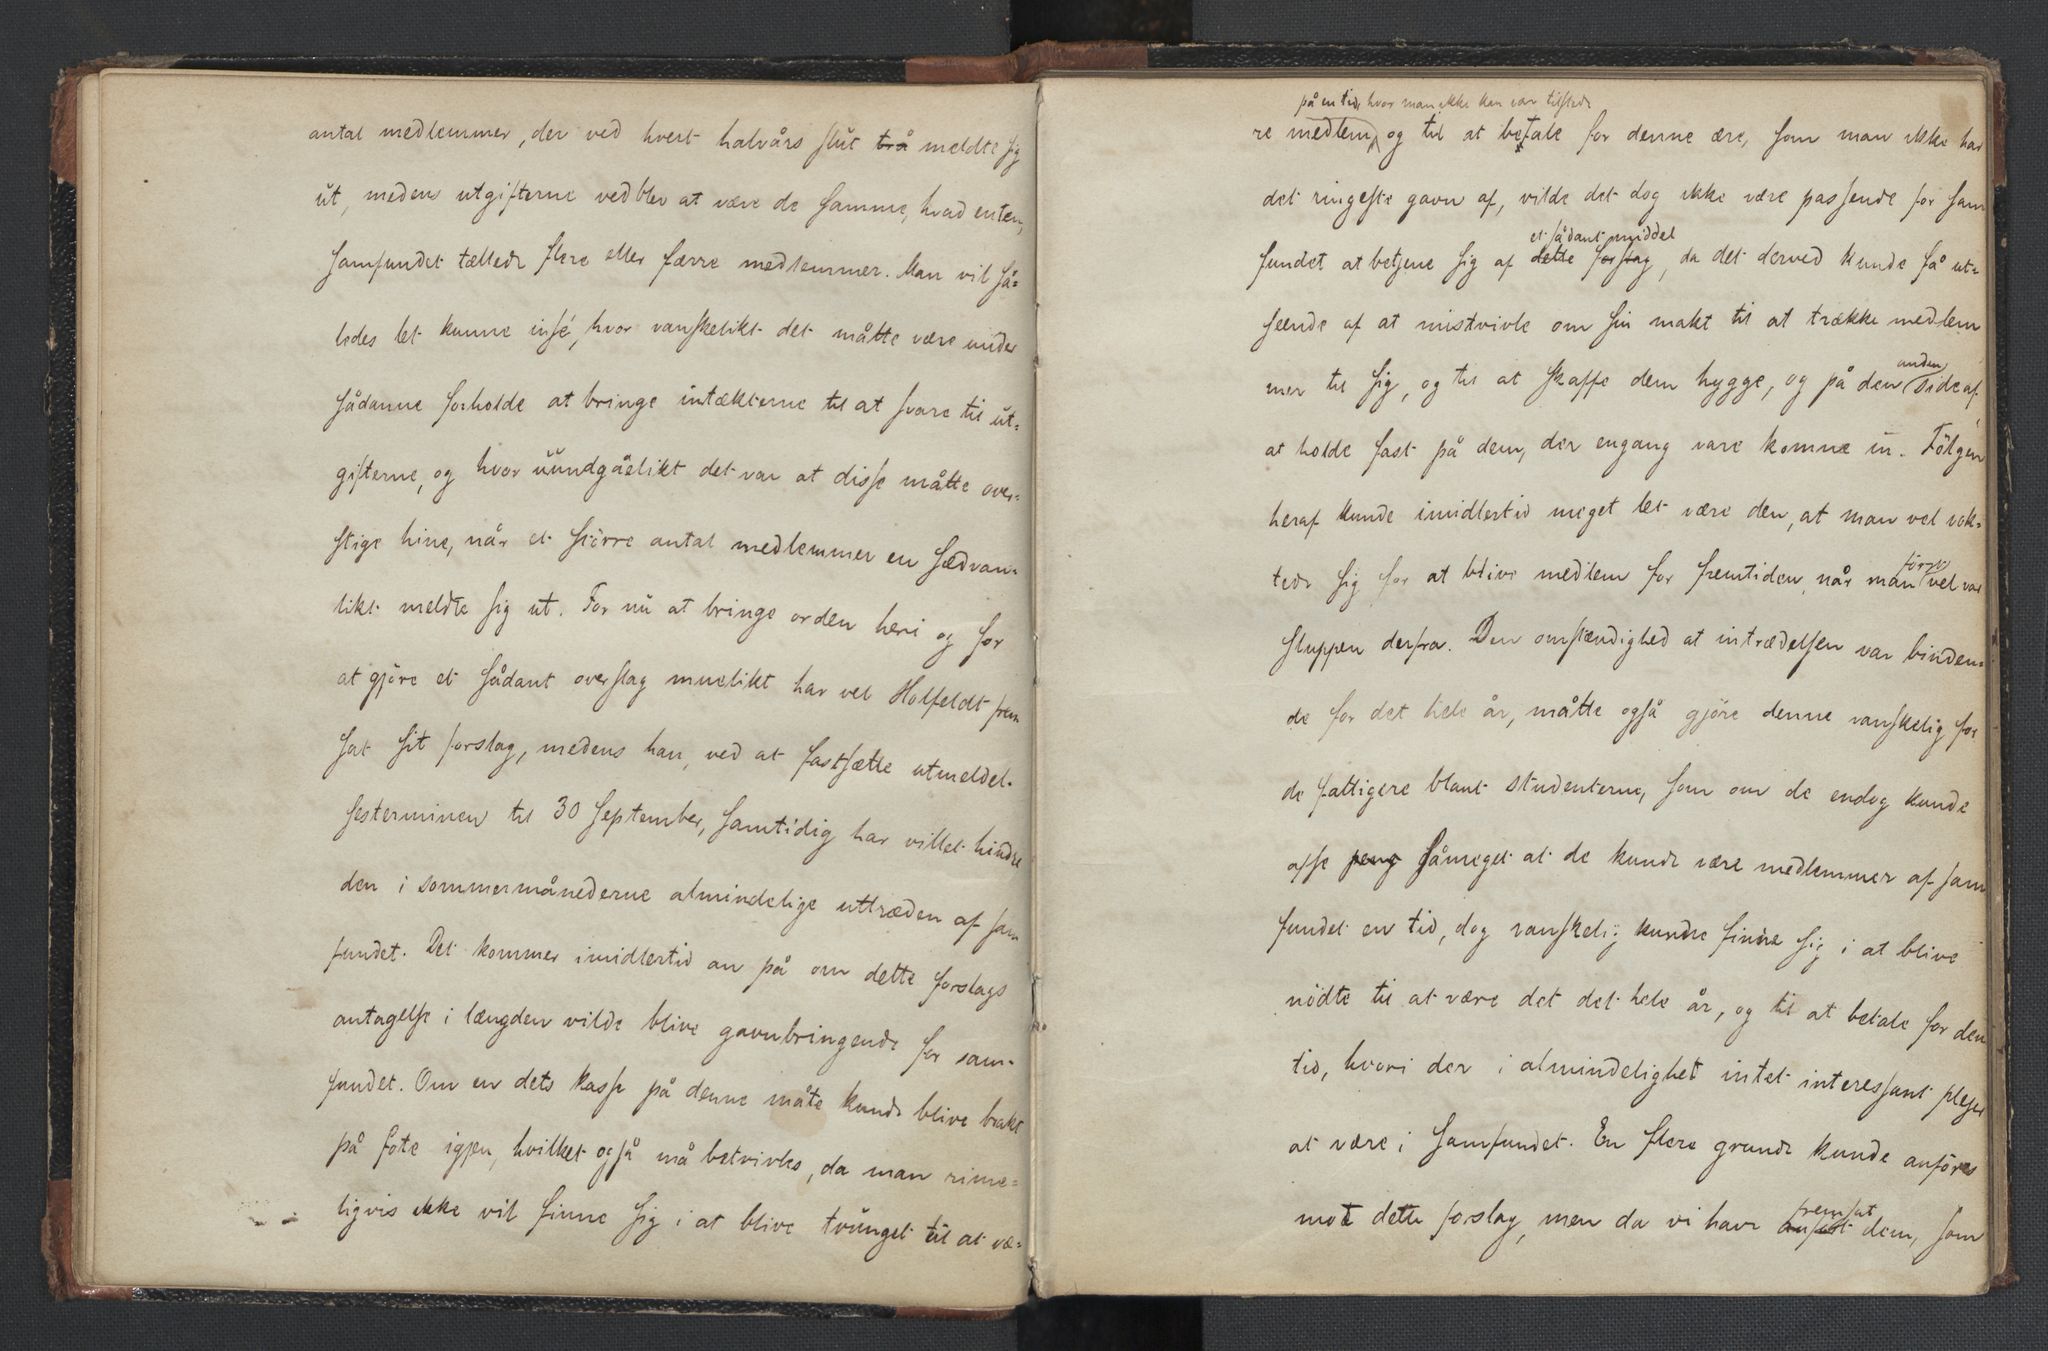 antal medlemmer, der ved hvert halvårs slut trå meldte sig
ut, medens utgifterne vedblev at være de samme, hvad enten,
samfundet tællede flere eller færre medlemmer. Man vil så-
ledes let kunne insé, hvor vanskelikt det måtte være under
sådanne forholde at bringe intækterne til at svare til ut-
gifterne, og hvor uundgåelikt det var at disse måtte over-
stige hine, når et större antal medlemmer en sædvan-
likt meldte sig ut. For nu at bringe orden heri og for
at gjöre et sådant overslag muelikt har vel Holfeldt frem
sat sit forslag, medens han, ved at fastsætte utmeldel-
sesterminen til 30 september, samtidig har villet hindre
den i sommermånederne almindelige uttræden af sam
fundet. Det kommer imidlertid an på om dette forslags
antagelse i længden vilde blive gavnbringende for sam-
fundet. Om en dets kasse på denne måte kunde blive brakt
på fote igjen, hvilket også må betvivles, da man rime-
ligvis ikke vil finne sig i at blive tvunget til at væ-
på en tid, hvor man ikke kan være tilstede
re medlem, og til at betale for denne ære, som man ikke har
det ringeste gavn af, vilde det dog ikke være passende for sam
et sådant middel
fundet at betjene sig af dette forslag, da det derved kunde få ut-
seende af at mistvivle om sin makt til at trække medlem
anden
mer til sig, og til at skaffe dem hygge, og på den side af
at holde fast på dem, der engang vare komne in. Fölgen
heraf kunde imidlertid meget let være den, at man vel vok-
först
tede sig for at blive medlem for fremtiden, når man vel var
sluppen derfra. Den omstændighed at intrædelsen var binden-
de for det hele år, måtte også gjöre denne vanskelig for
de fattigere blant studenterne, som om de endog kunde
afse peng såmeget at de kunde være medlemmer af sam
fundet en tid, dog vanskelig kunde finne sig i at blive
nödte til at være det det hele år, og til at betale for den
tid, hvori der i almindelighet intet interessant plejer
at være i samfundet. En flere grunde kunde anföres
fremsat
mot dette forslag, men da vi have anfört dem, som